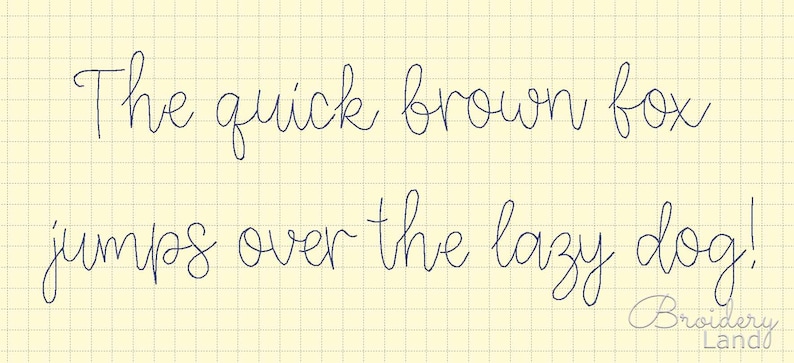 The quick brown fox
jumps over the lazy dog!
Broidery
Land